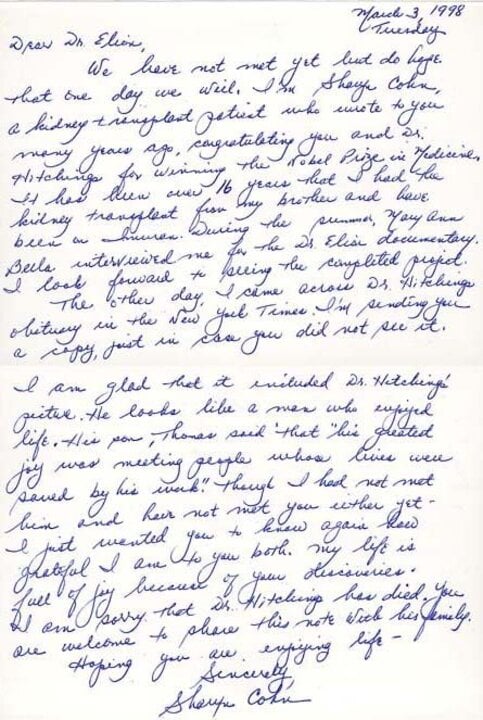 March 3, 1998
Tuesday
Dear Dr. Elion,
We have not met yet but do hope
that one day we will. I'm Sharyn Cohn,
a kidney transplant patient who wrote to you
many years ago, congratulating you and Dr.
Hitchings for winning the Nobel Prize in Medicine.
It has been over 16 years that I had the
kidney transplant from my brother and have
been on Imuran. During the summer, Mary Ann
Bella interviewed me for the Dr. Elion documentary.
I look forward to seeing the completed project.
The other day, I came across Dr. Hitchings
obituary in the New York Times. I'm sending you
a copy, just in case you did not see it.
I am glad that it included Dr. Hitching's
picture. He looks like a man who enjoyed
life. His son, Thomas said that "his greatest
joy was meeting people whose lives were
saved by his work." Though I had not met
him and have not met you either yet -
I just wanted you to know again how
grateful I am to you both. My life is
full of joy because of your discoveries.
I am sorry that Dr. Hitchings has died. You
are welcome to share this note with his family.
Hoping you are enjoying life -
Sincerely,
Sharyn Cohn